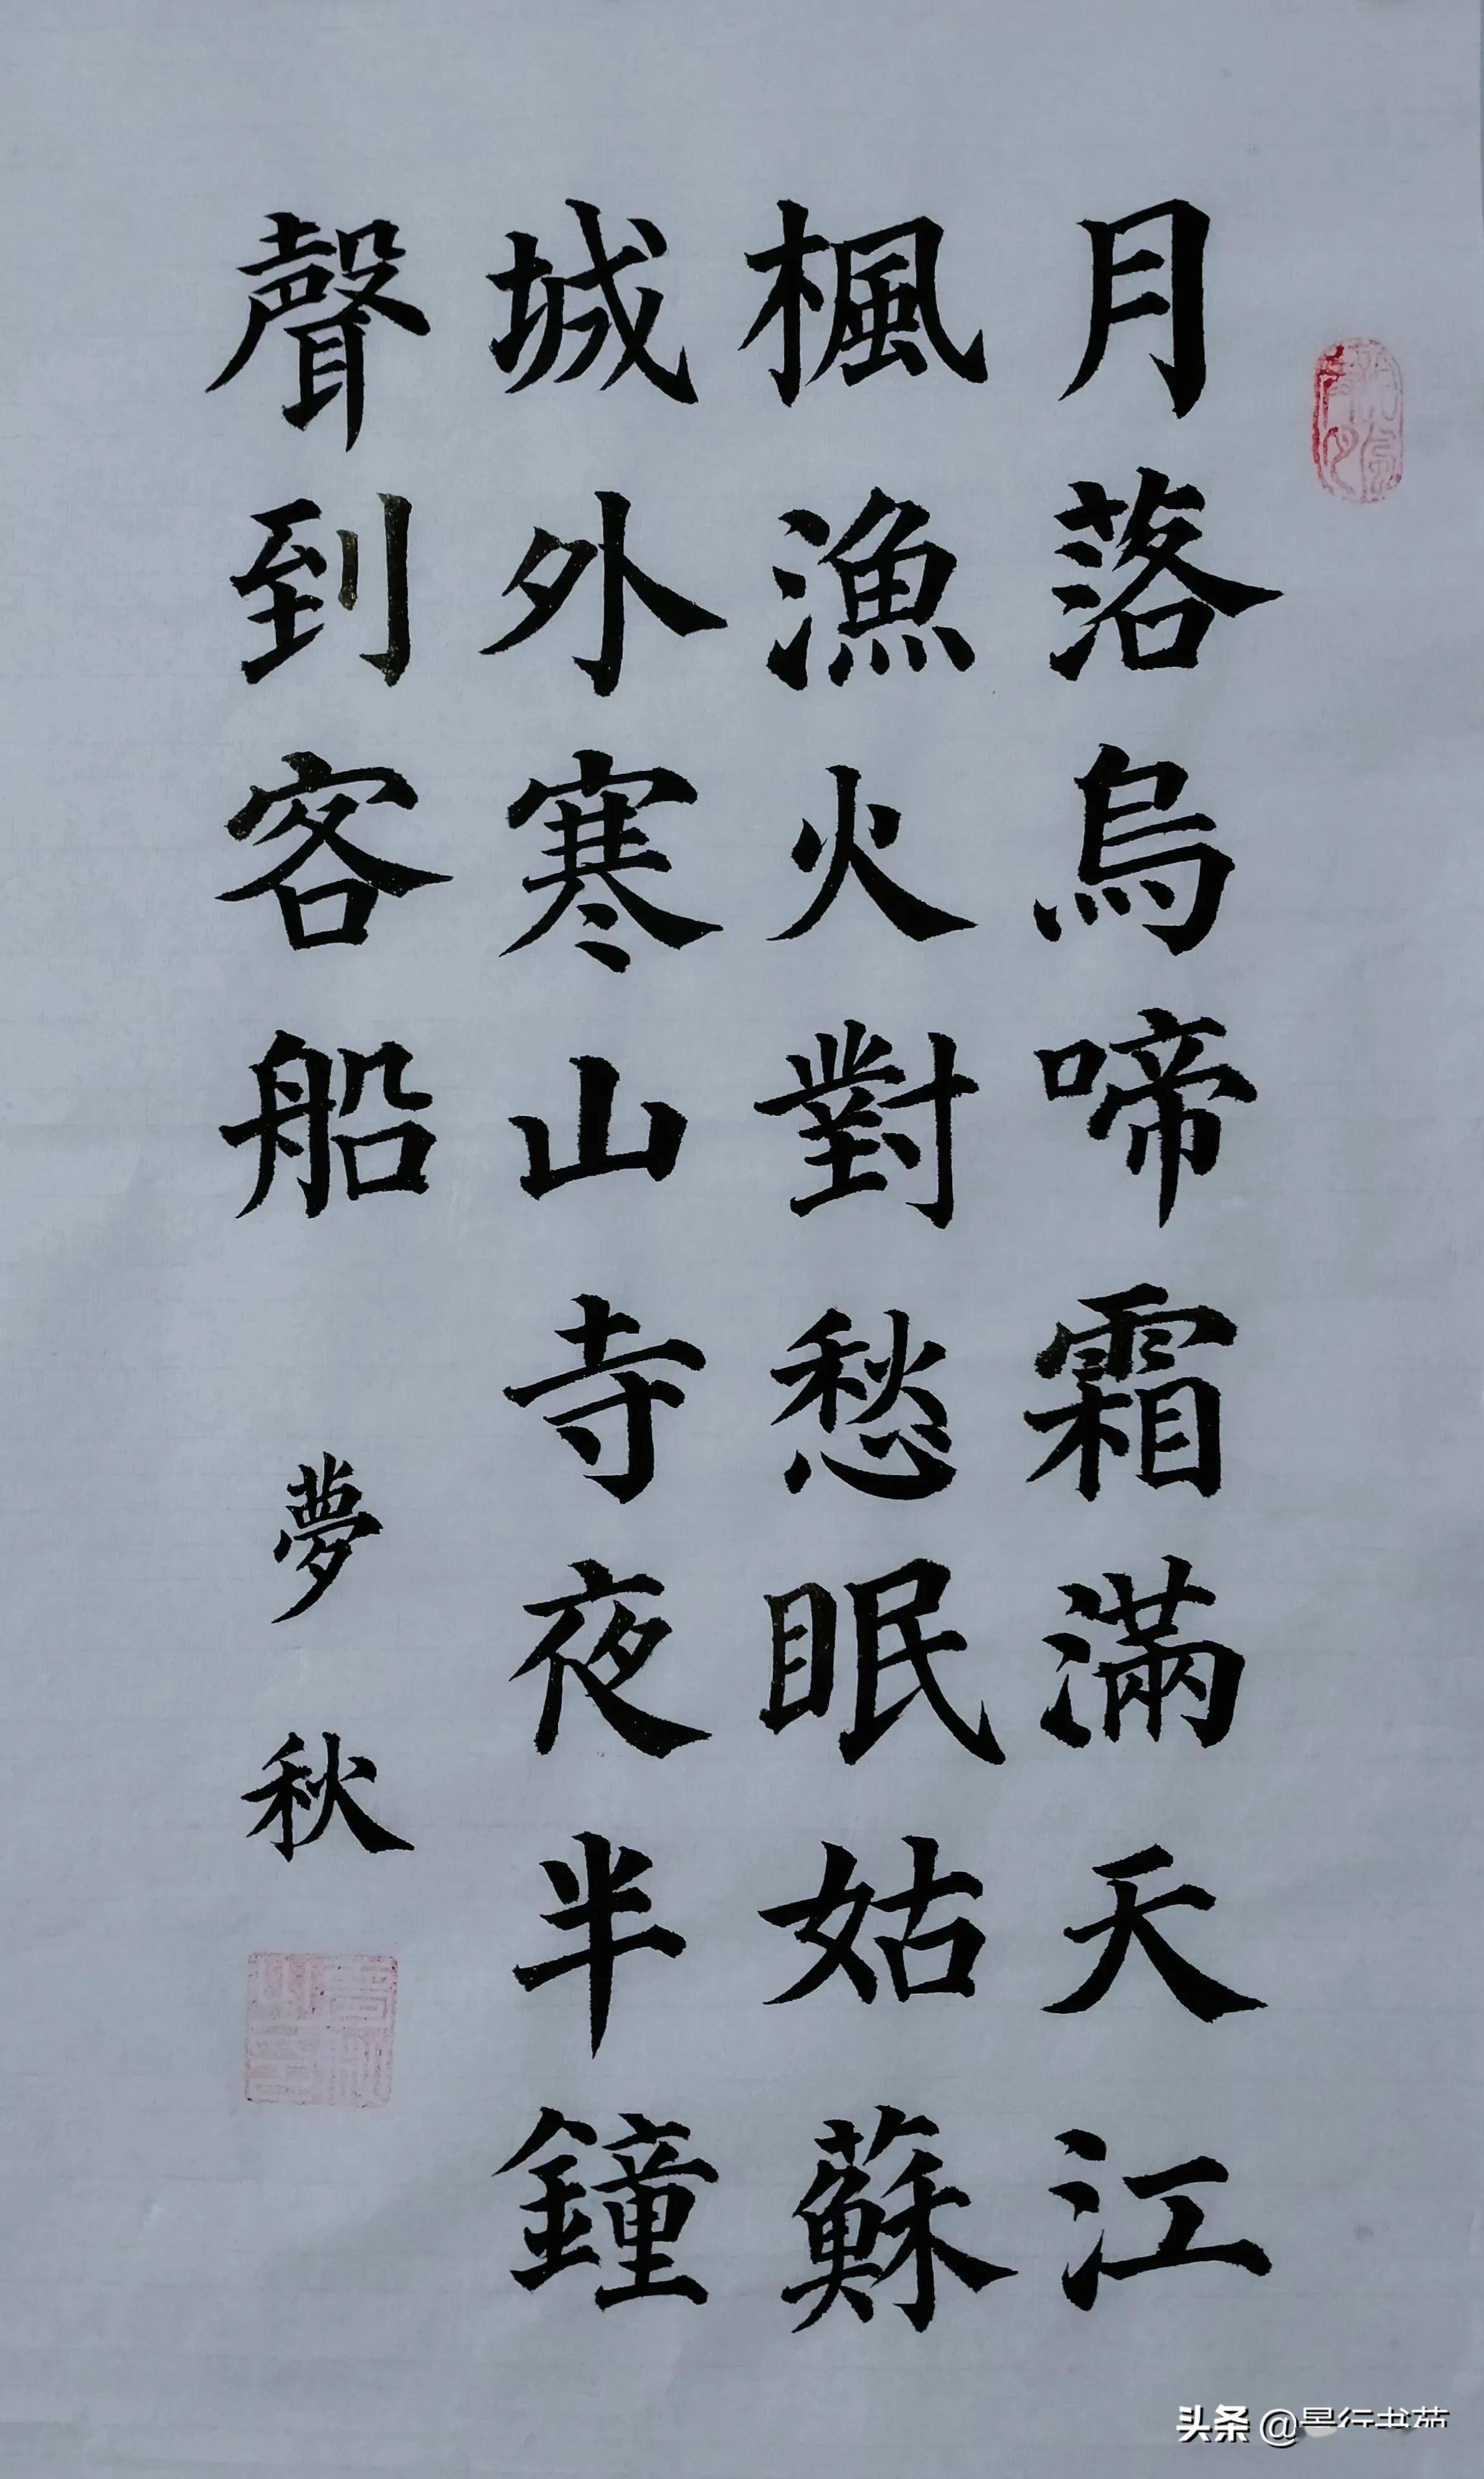 月落烏啼霜滿天江
楓漁火對愁眠姑蘇
城外寒山寺夜半鐘
聲到客船
夢秋
头条 @景行书苑